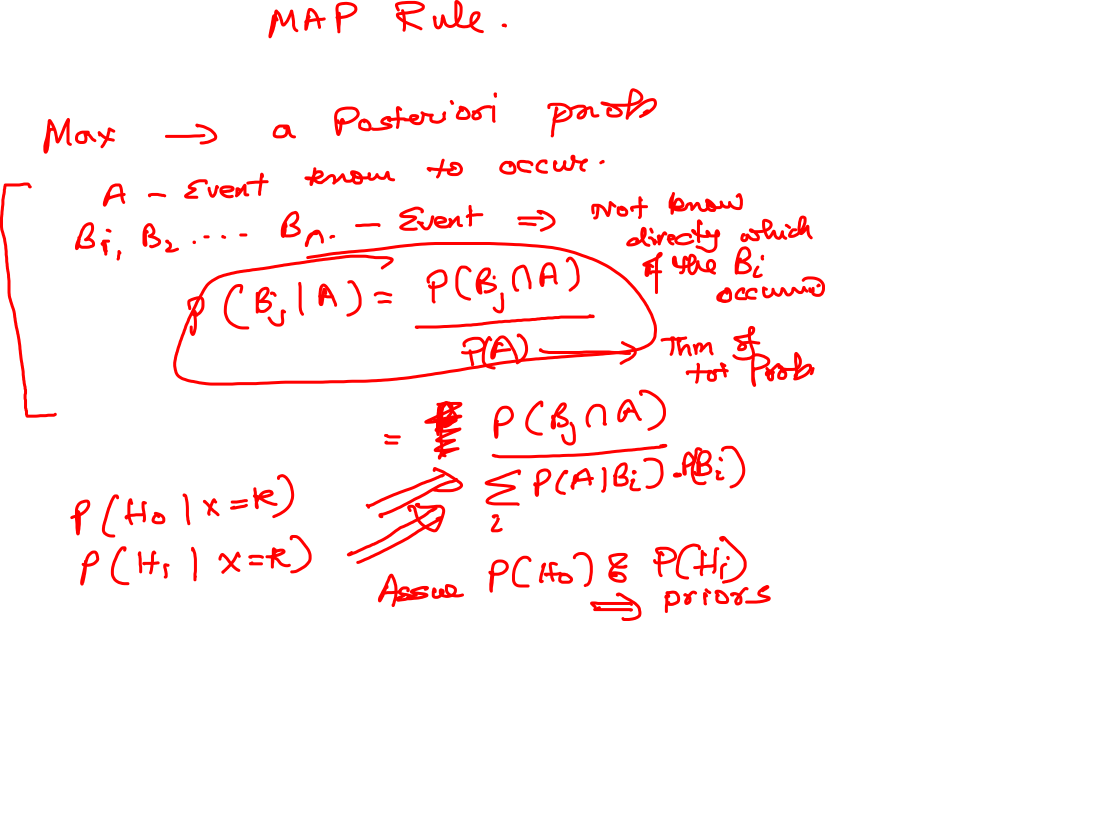 MAP Rule.
Max → a Posteriori prob
A - Event know to occur.
B1, B2 .... Bn. - Event ⇒ Not know
directly which
of the Bi
occurred
P(Bj | A) = P(Bj ∩ A) / P(A) → Thm of
tot Prob.
= P(Bj ∩ A) / Σi P(A|Bi) . P(Bi)
P(H0 | X=k)
P(H1 | X=k)
Assue P(H0) & P(H1)
⇒ priors